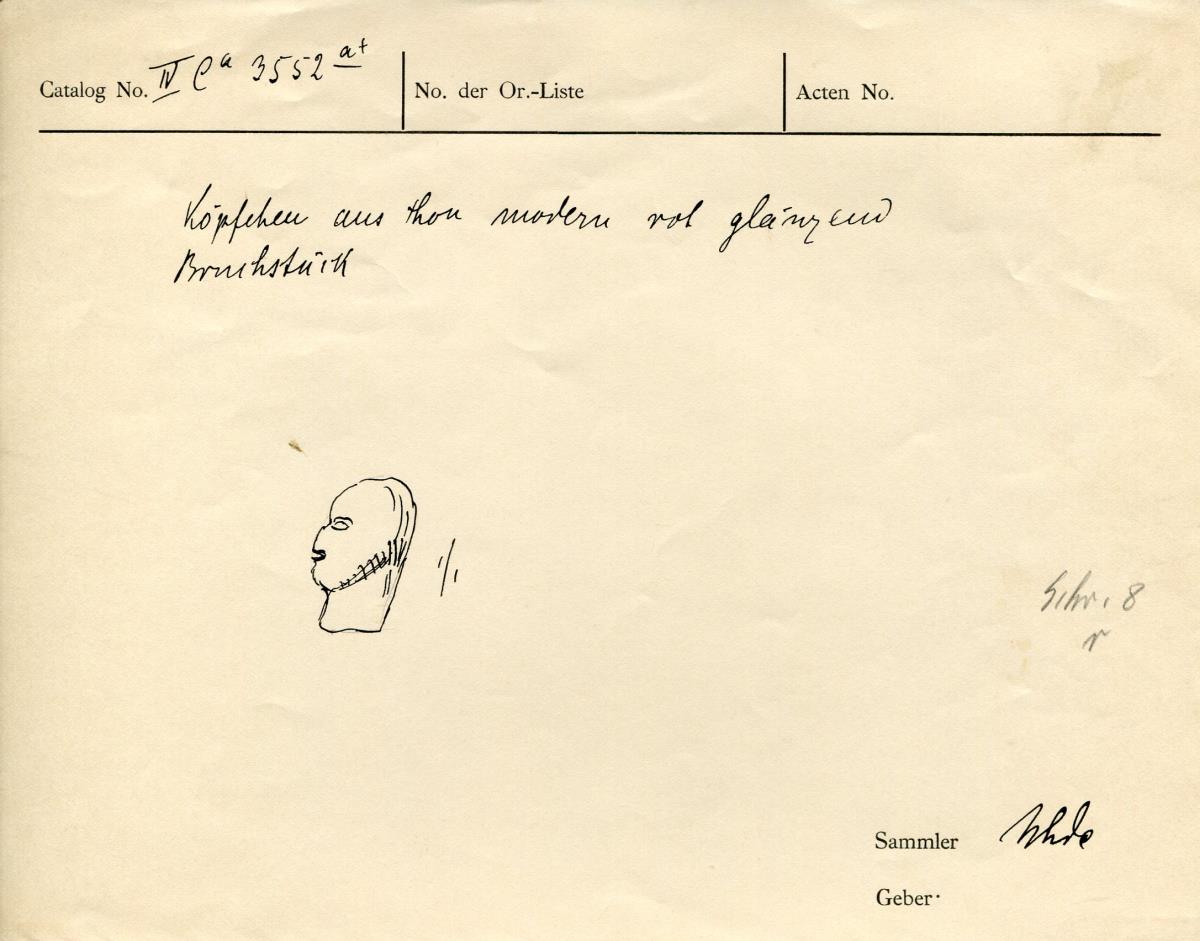 Catalog No. IV Ca 3552 a+
No. der Or.-Liste
Acten No.
Köpfchen aus thon modern rot glänzend
Bruchstück
1/1
Schr. 8
r
Sammler Uhde
Geber